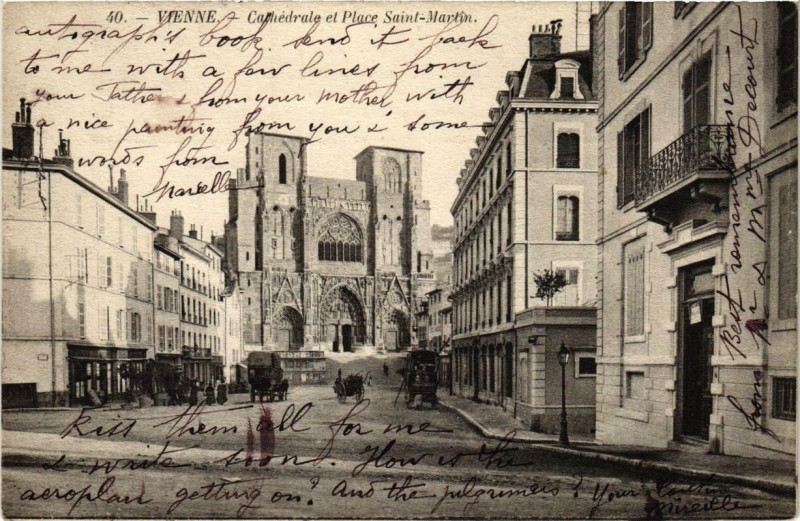 40. – VIENNE. – Cathédrale et Place Saint-Martin.
autograph's book. send it back
to me with a few lines from
your Father & from your mother with
a nice painting from you & some
words from
Marcelle
Kiss them all for me
& write soon. How is the
aeroplan getting on? And the pilgrimers? Your
Mireille
Best remembrance
from
pr & Mme Decourt